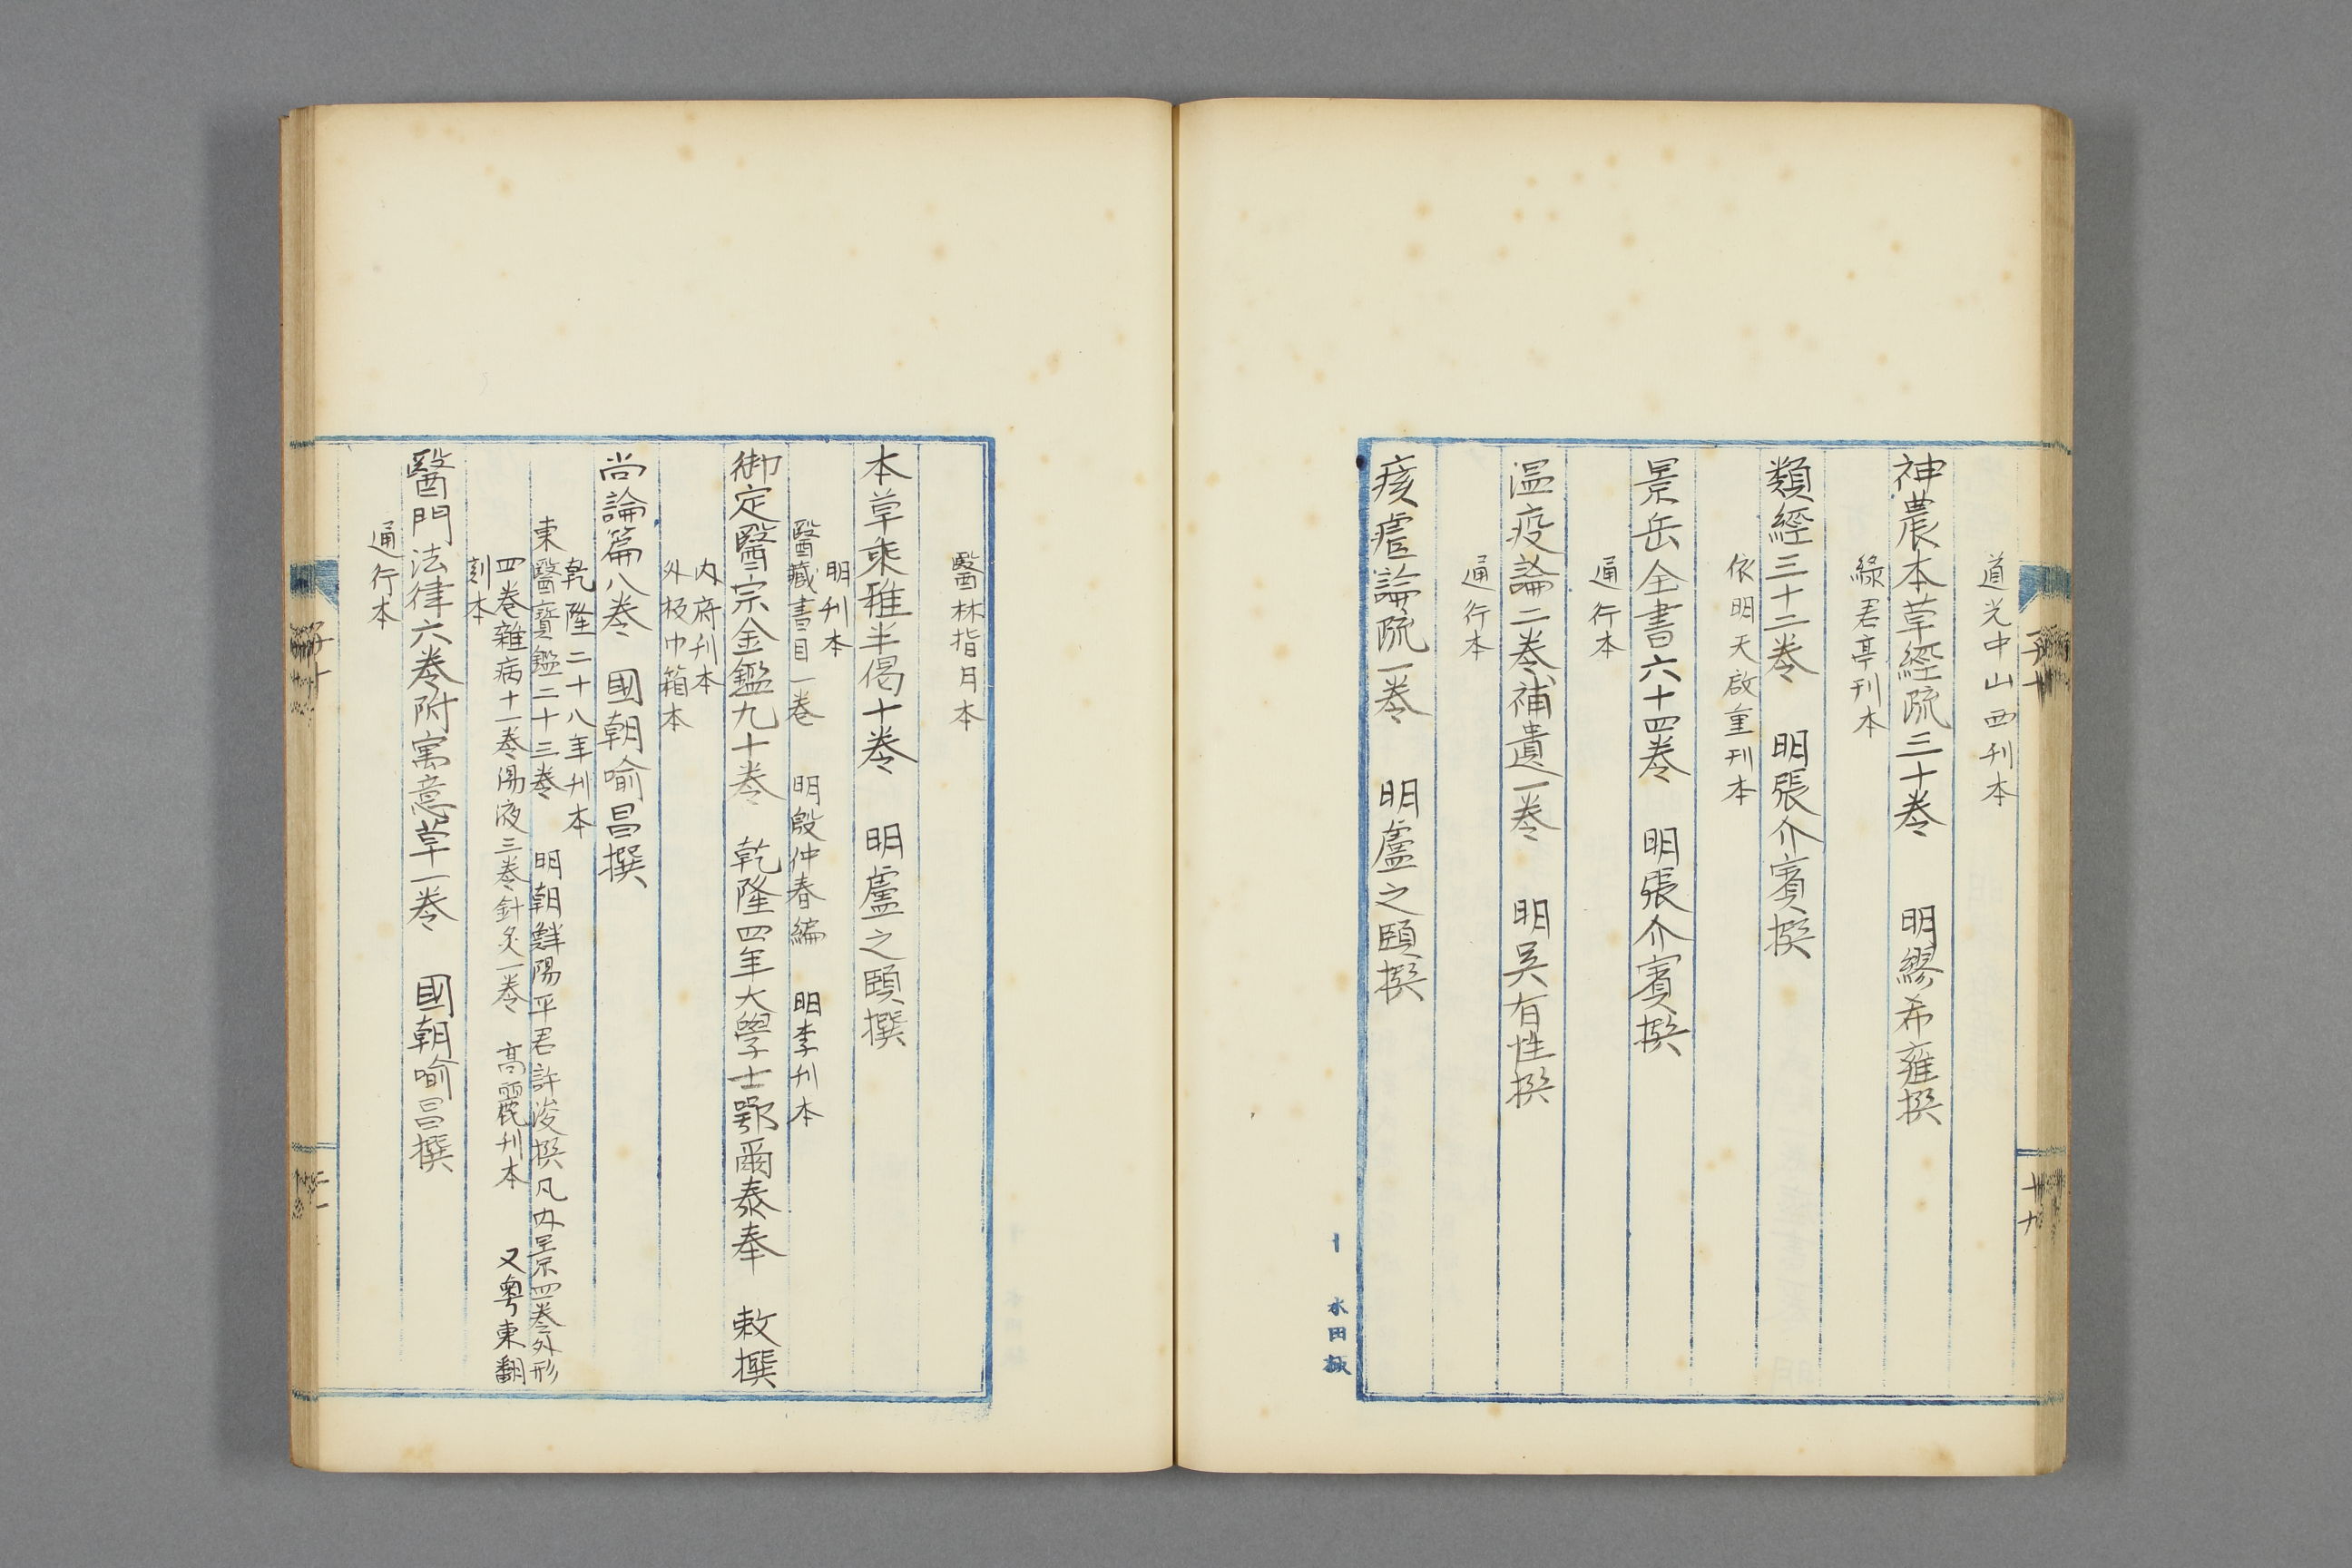 道光中山西刊本
神農本草經疏三十卷　明繆希雍撰
綠君亭刊本
類經三十二卷　明張介賓撰
依明天啟重刊本
景岳全書六十四卷　明張介賓撰
通行本
温疫論二卷補遺一卷　明吳有性撰
通行本
痎瘧論疏一卷　明盧之頤撰
十九
醫林指月本
本草乘雅半偈十卷　明盧之頤撰
明刊本
醫藏書目一卷　明殷仲春編　明李刋本
御定醫宗金鑑九十卷　乾隆四年大學士鄂爾泰奉　敕撰
内府刋本
外板巾箱本
尚論篇八卷　國朝喻昌撰
乾隆二十八年刋本
東醫寶鑑二十三卷　明朝鮮陽平君許浚撰凡内景四卷外形
四卷雜病十一卷湯液三卷針灸一卷　高麗刋本　又粵東翻
刻本
醫門法律六卷附寓意草一卷　國朝喻昌撰
通行本